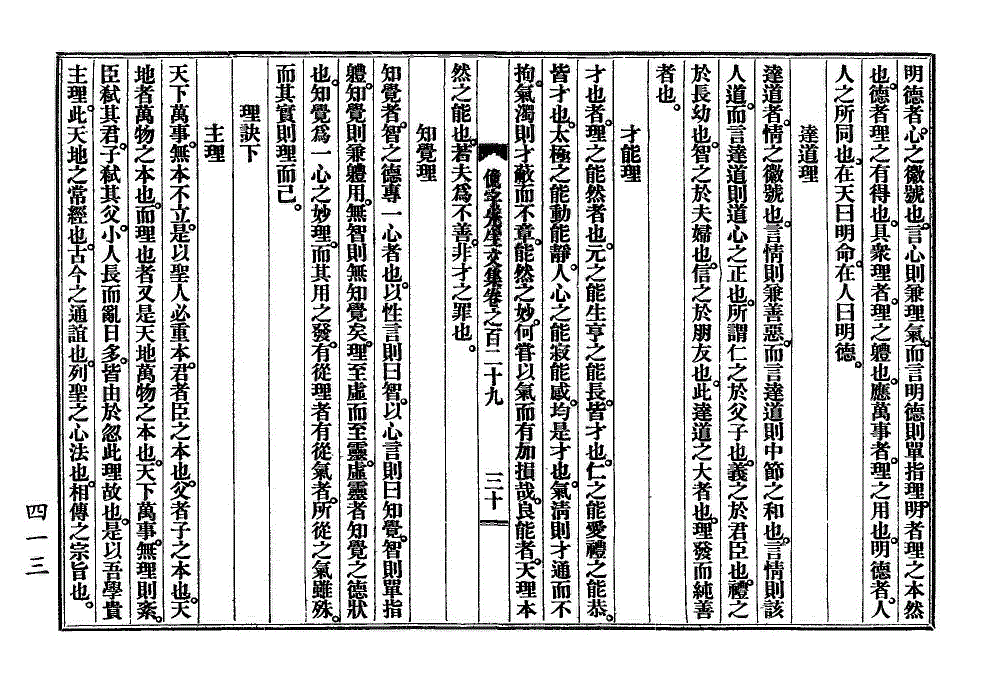 明德者。心之徽號也。言心則兼理氣。而言明德則單指理。明者理之本然
也。德者理之有得也。具衆理者。理之體也。應萬事者。理之用也。明德者。人
人之所同也。在天曰明命。在人曰明德。
達道理
達道者。情之徽號也。言情則兼善惡。而言達道則中節之和也。言情則該
人道。而言達道則道心之正也。所謂仁之於父子也。義之於君臣也。禮之
於長幼也。智之於夫婦也。信之於朋友也。此達道之大者也。理發而純善
者也。
才能理
才也者。理之能然者也。元之能生亨之能長。皆才也。仁之能愛禮之能恭。
皆才也。太極之能動能靜。人心之能寂能感。均是才也。氣淸則才通而不
拘。氣濁則才蔽而不章。能然之妙。何嘗以氣而有加損哉。良能者。天理本
然之能也。若夫爲不善。非才之罪也。
先生文集卷之百二十九 三十
知覺理
知覺者。智之德專一心者也。以性言則曰智。以心言則曰知覺。智則單指
軆。知覺則兼軆用。無智則無知覺矣。理至虛而至靈。虛靈者知覺之德狀
也。知覺爲一心之妙理。而其用之發。有從理者有從氣者。所從之氣雖殊。
而其實則理而已。
理訣下
主理
天下萬事。無本不立。是以聖人必重本。君者臣之本也。父者子之本也。天
地者萬物之本也。而理也者又是天地萬物之本也。天下萬事。無理則紊。
臣弑其君。子弑其父。小人長而亂日多。皆由於忽此理故也。是以吾學貴
主理。此天地之常經也。古今之通誼也。列聖之心法也。相傳之宗旨也。
四一三